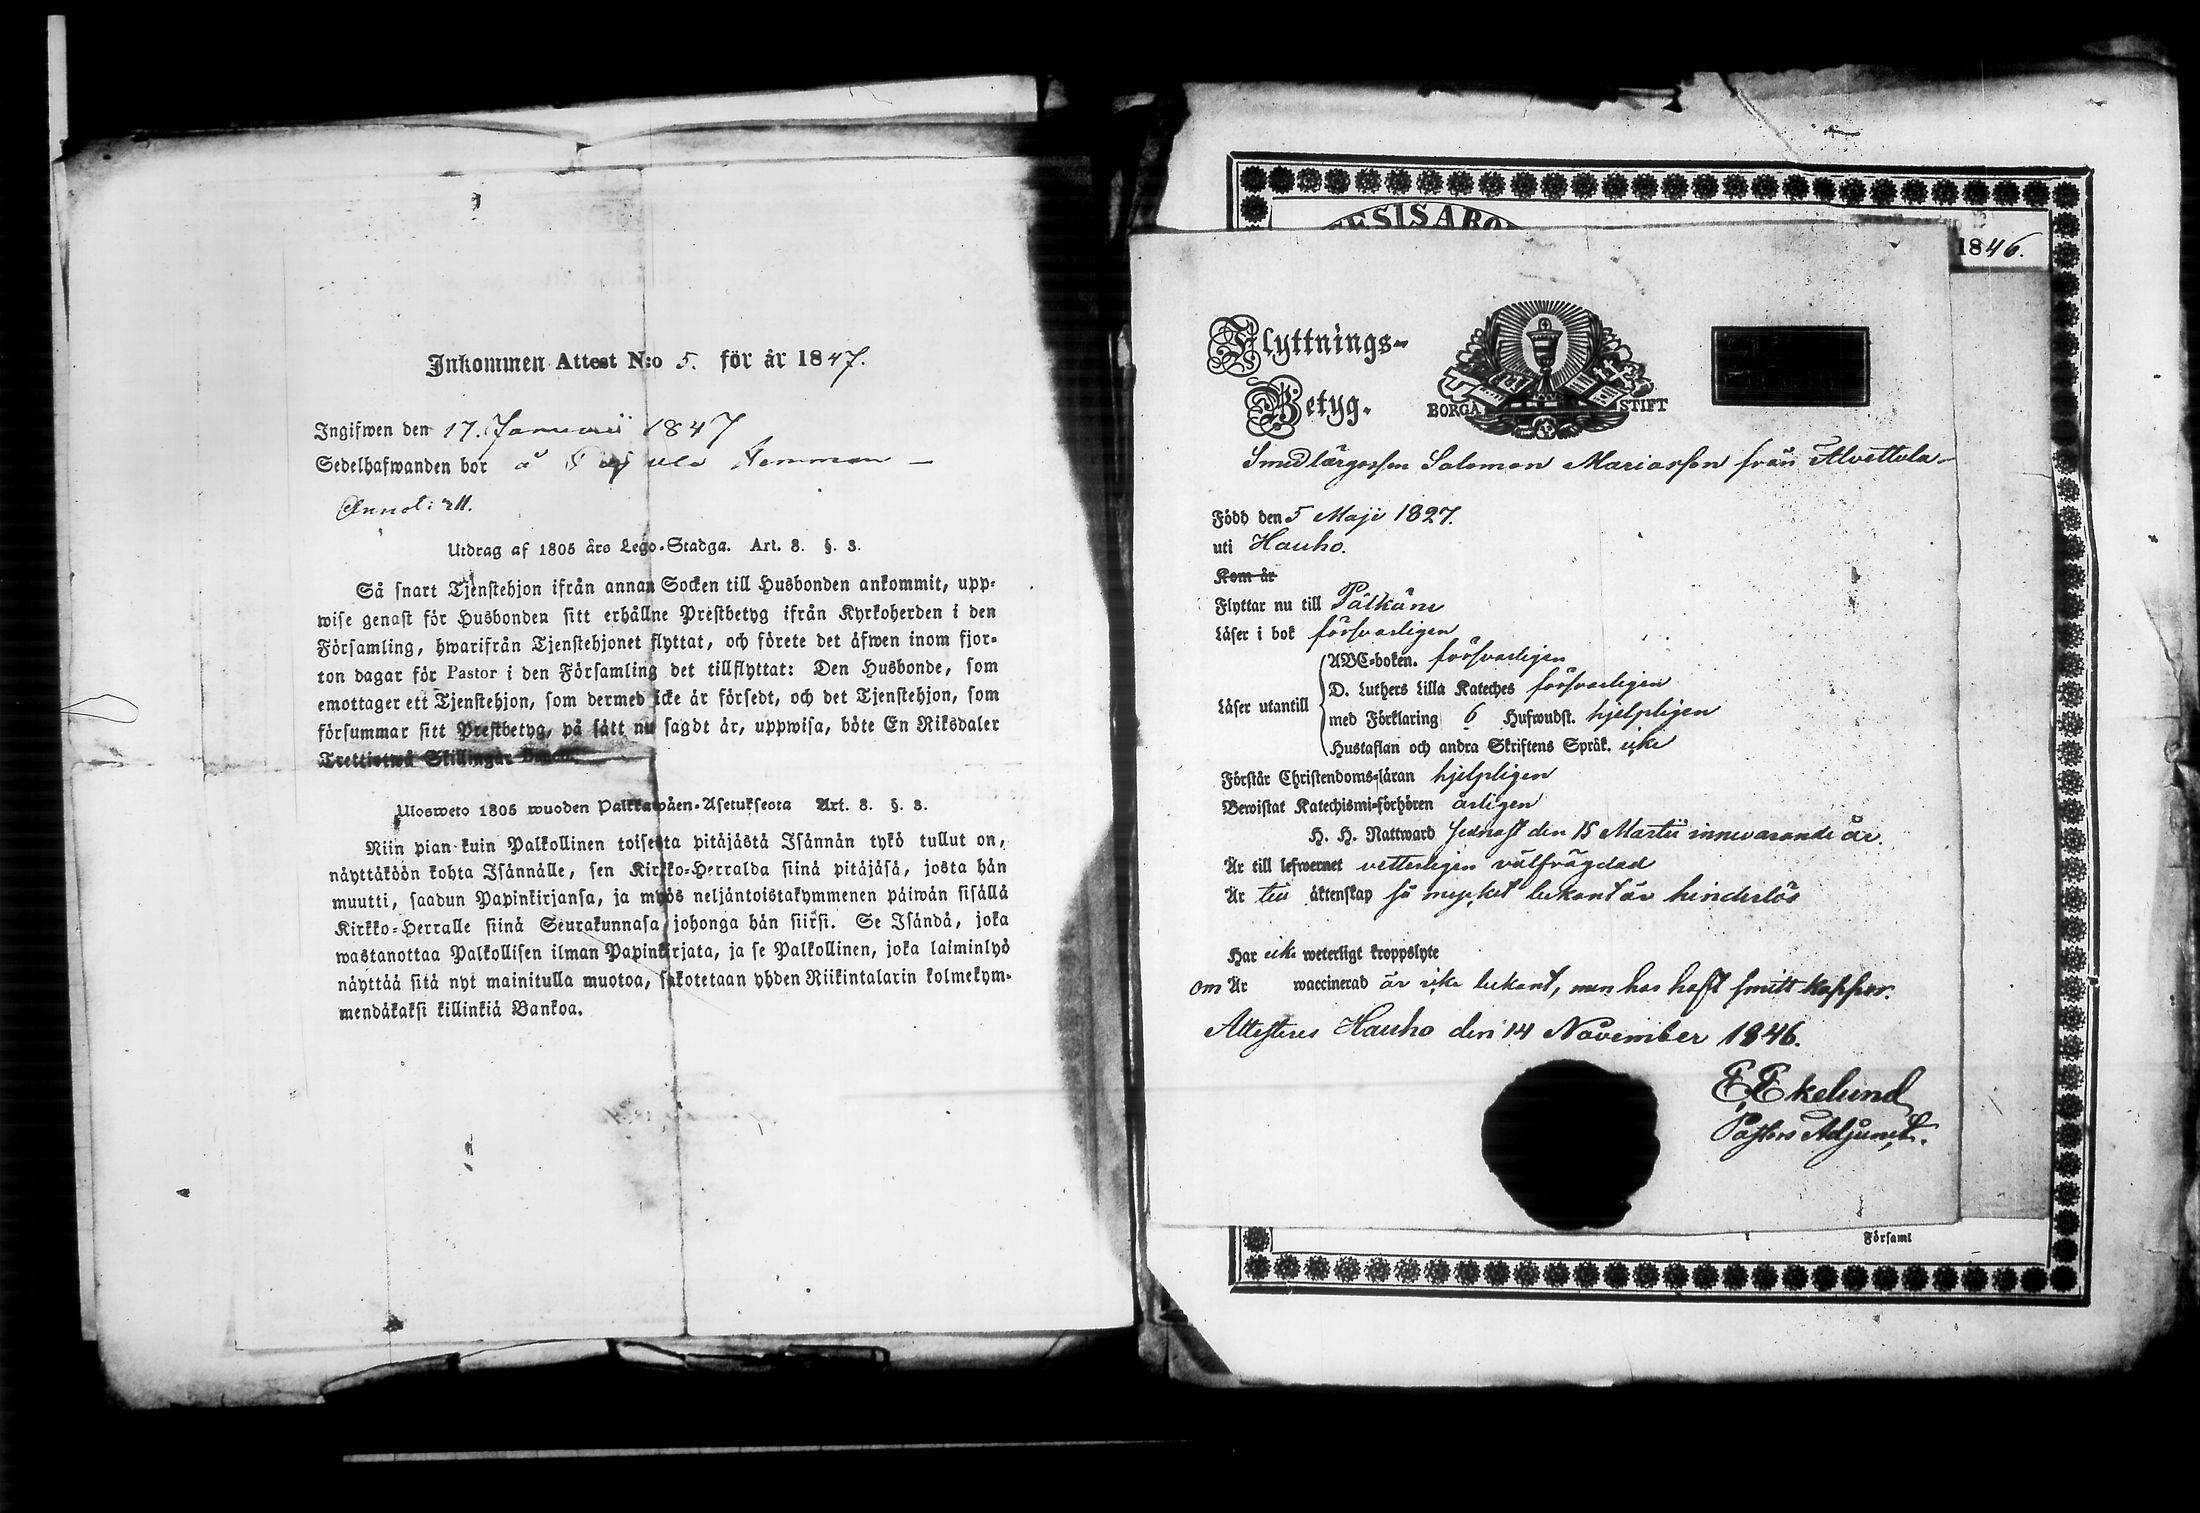 Inkommen Attest N:o 5. för år 1847.
Ingifwen den 17. Januarii 1847
Sedelhafwanden bor å Hemman
Utdrag af 1805 års Lego-Stadga. Art. 8. §. 3.
Så snart Tjenstehjon ifrån annan Socken till Husbonden ankommit, upp-
wise genast för Husbonden sitt erhållne Prestbetyg ifrån Kyrkoherden i den
Församling, hwarifrån Tjenstehjonet flyttat, och förete det äfwen inom fjor-
ton dagar för Pastor i den Församling det tillflyttat: Den Husbonde, som
emottager ett Tjenstehjon, som dermed icke är försedt, och det Tjenstehjon, som
försummar sitt Prestbetyg, på sätt nu sagdt är, uppwisa, böte En Riksdaler
Trettiotwå Skillingar Banco.
Ulosweto 1805 wuoden Palkkawäen-Asetuksesta Art. 8. §. 3.
Niin pian kuin Palkollinen toisesta pitäjästä Isännän tykö tullut on,
näyttäköön kohta Isännälle, sen Kirkko-Herralda siinä pitäjäsä, josta hän
muutti, saadun Papinkirjansa, ja myös neljäntoistakymmenen päiwän sisällä
Kirkko-Herralle siinä Seurakunnasa johonga hän siirsi. Se Isändä, joka
wastanottaa Palkollisen ilman Papinkirjata, ja se Palkollinen, joka laiminlyö
näyttää sitä nyt mainitulla muotoa, sakotetaan yhden Riikintalarin kolmekym-
mendäkaksi killinkiä Bankoa.
ESISABO
1846.
Flyttnings-
Betyg.
BORGÅ STIFT
Smedlärgossen Salomon Mariasson från Alvettula
Född den 5 Maji 1827.
uti Hauho.
Kom år
Flyttar nu till Pälkäne
Läser i bok försvarligen
Läser utantill
ABC-boken. försvarligen
D. Luthers Lilla Kateches försvarligen
med Förklaring 6 Hufwudst. hjelpligen
Hustaflan och andra Skriftens Språk. icke
Förstår Christendoms-läran hjelpligen
Bewistat Katechismi-förhören årligen
H. H. Nattward sednast den 15 Martii innevarande år.
Är till lefwernet vetterligen välfrägdad
Är till äktenskap så mycket bekant är hinderlös
Har icke weterligt kroppslyte
om Är waccinerad är icke bekant, men har haft smittkoppor.
Attesteres Hauho den 14 November 1846.
E. Ekelund
Pastors Adjunct.
Församl